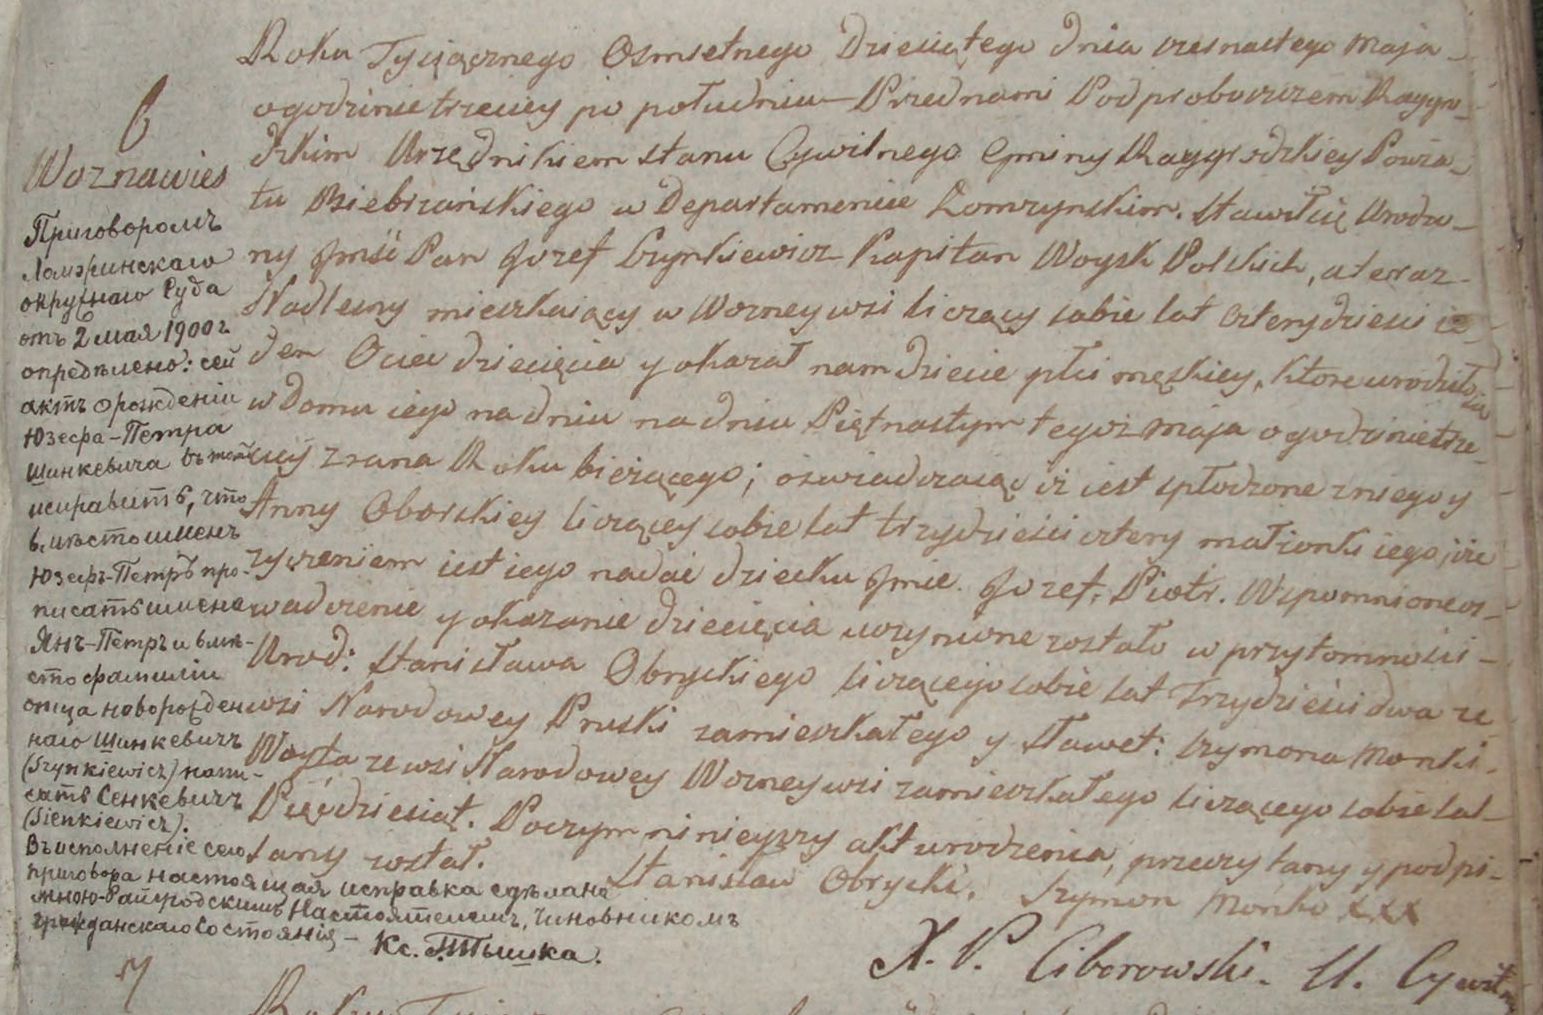 6
Woznawieś
Приговоромъ
Ломжинскаго
окружнаго Суда
отъ 2 мая 1900 г
опредѣлено: сей
актъ о рожденіи
Юзефа-Петра
Шинкевича въ томъ
исправить, что
вмѣсто именъ
Юзефъ-Петръ про-
писать имена
Янъ-Петръ и вмѣ-
сто фамиліи
отца новорожден-
наго Шинкевичъ
(Szynkiewicz) напи-
сать Сенкевичъ
(Sienkiewicz).
Въ исполненіе сего
приговора настоящая исправка сдѣлана
мною Райгродскимъ Настоятелемъ, Чиновникомъ
гражданскаго Состоянія –
Кс. Тышка.
Roku Tysiącznego Osmsetnego Dziesiątego dnia szesnastego Maja
o godzinie trzeciey po południu – Przed nami Podproboszczem Raygro-
dzkim Urzędnikiem stanu Cywilnego Gminy Raygrodzkiey Powia-
tu Biebrzańskiego w Departamencie Łomzynskim. Stawił się Urodzo-
ny Jmść Pan Jozef Szynkiewicz Kapitan Woysk Polskich, a teraz
Nadleśny mieszkaiący w Wozneywsi liczący sobie lat czterydzieści ie-
den Ociec dziecięcia y okazał nam dziecie płci męskiey, które urodziło się
w Domu iego na dniu na dniu Piętnastym tegoż Maja o godzinie trze-
ciey z rana Roku bieżącego; oświadczaiąc iż iest spłodzone z niego y
Anny Oborskiey liczącey sobie lat trzydzieści cztery małżonki iego, iże
życzeniem iest iego nadać dziecku Jmie. Jozef, Piotr. Wspomnione oś-
wiadczenie y okazanie dziecięcia uczynione zostało w przytomności
Urod: Stanisława Obryckiego liczącego sobie lat Trzydzieści dwa ze
wsi Narodowey Pruski zamieszkałego y sławet: Szymona Monki
Woyta ze wsi Narodowey Wozneywsi zamieszkałego liczącego sobie lat
Pięćdziesiąt. Poczym ninieyszy akt urodzenia, przeczytany y podpi-
sany został.
Stanisław Obrycki. Szymon Mońko XXX
X. P. Ciborowski. U. Cywilny
7